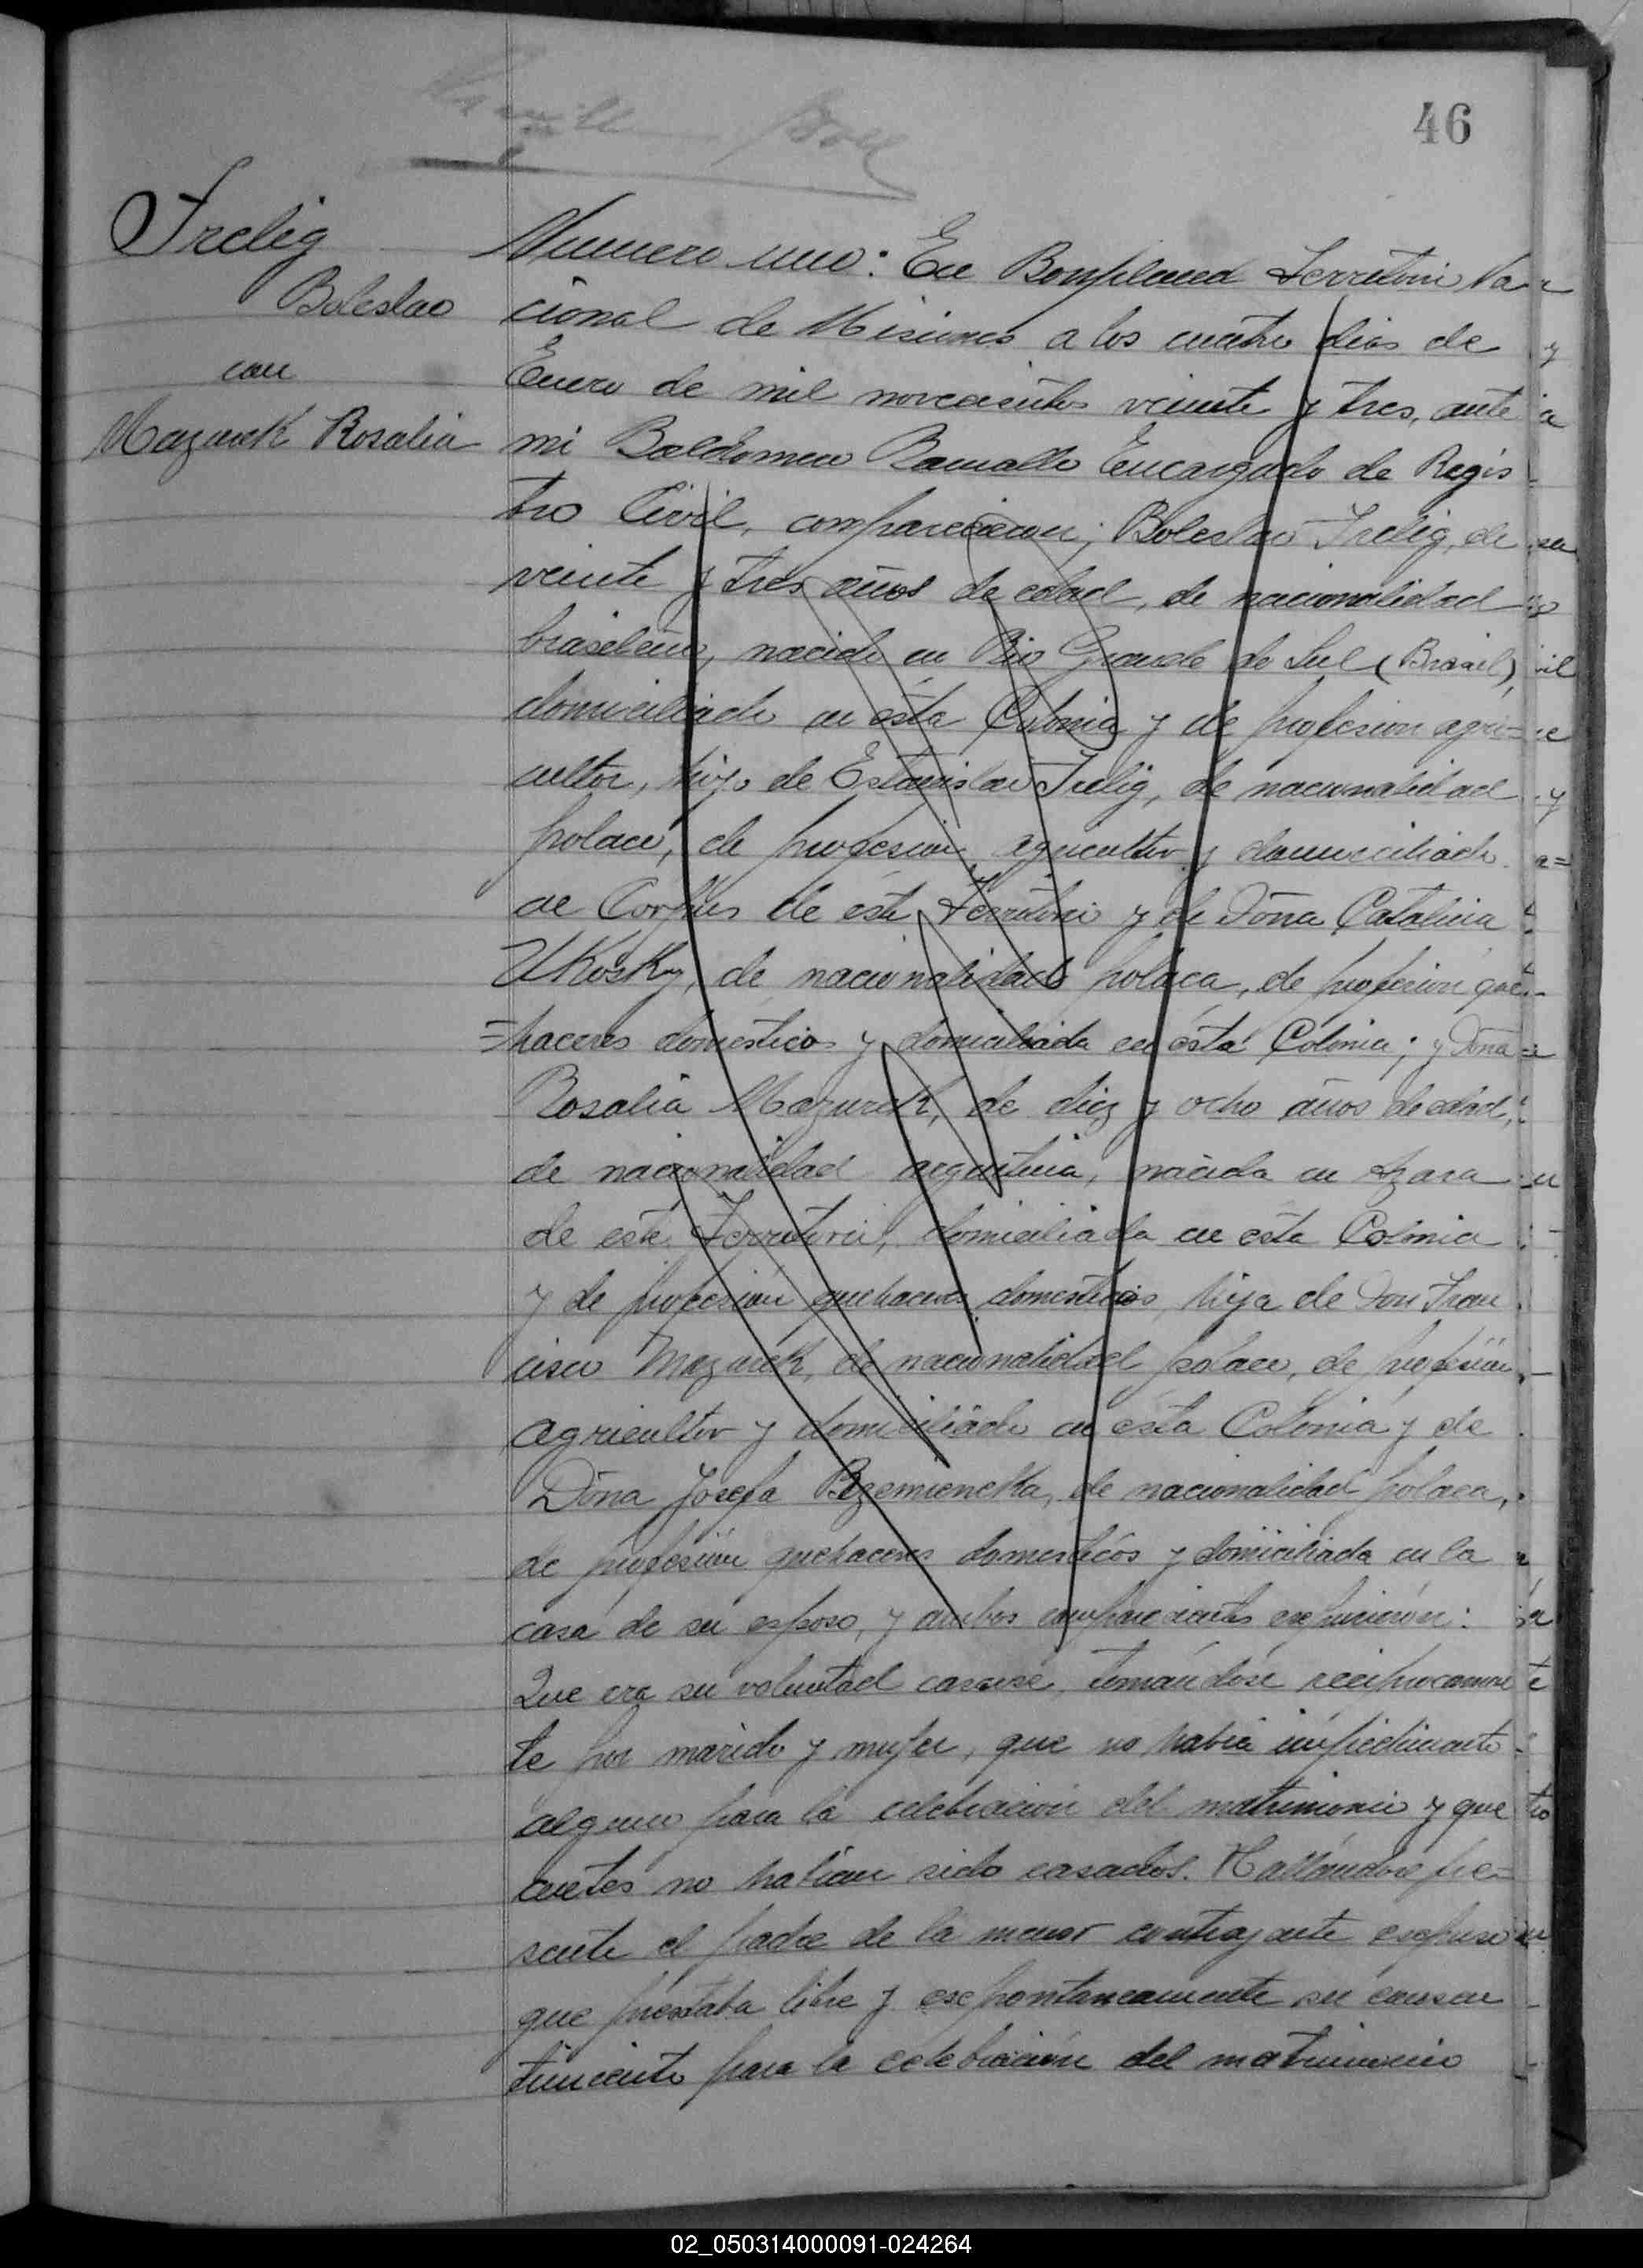 46
Frelig
Boleslao
con
Mazurek Rosalia
Numero uno: En Bonpland Territorio Na
cional de Misiones a los cuatro dias de
Enero de mil novecientos veinte y tres, ante
mi Baldomero Ramallo Encargado de Regis
tro Civil, comparecieron; Boleslao Frelig, de
veinte y tres años de edad, de nacionalidad
brasileño, nacido en Rio Grande do Sul (Brasil),
domiciliado en ésta Colonia y de profesion agri=
cultor, hijo de Estanislao Frelig, de nacionalidad
polaco, de profesion agricultor y domiciliado
en Corpus de este Territorio y de Doña Catalina
Ukosky, de nacionalidad polaca, de profesion que
=haceres domesticos y domiciliada en ésta Colonia; y Doña
Rosalia Mazurek, de diez y ocho años de edad,
de nacionalidad argentina, nacida en Azara
de este Territorio, domiciliada en esta Colonia
y de profesión quehaceres domesticos, hija de Don Fran
cisco Mazurek, de nacionalidad polaco, de profesion
agricultor y domiciliado en ésta Colonia y de
Doña Josefa Bzemieneka, de nacionalidad polaca,
de profesion quehaceres domesticos y domiciliada en la
casa de su esposo, y ambos comparecientes expusieron:
Que era su voluntad casarse, tomandose reciprocamen
te por marido y mujer, que no habia impedimento
alguno para la celebracion del matrimonio y que
antes no habian sido casados. Hallandose pre=
sente el padre de la menor contrayente expuso
que prestaba libre y espontaneamente su consen
timiento para la celebración del matrimonio
02_050314000091-024264